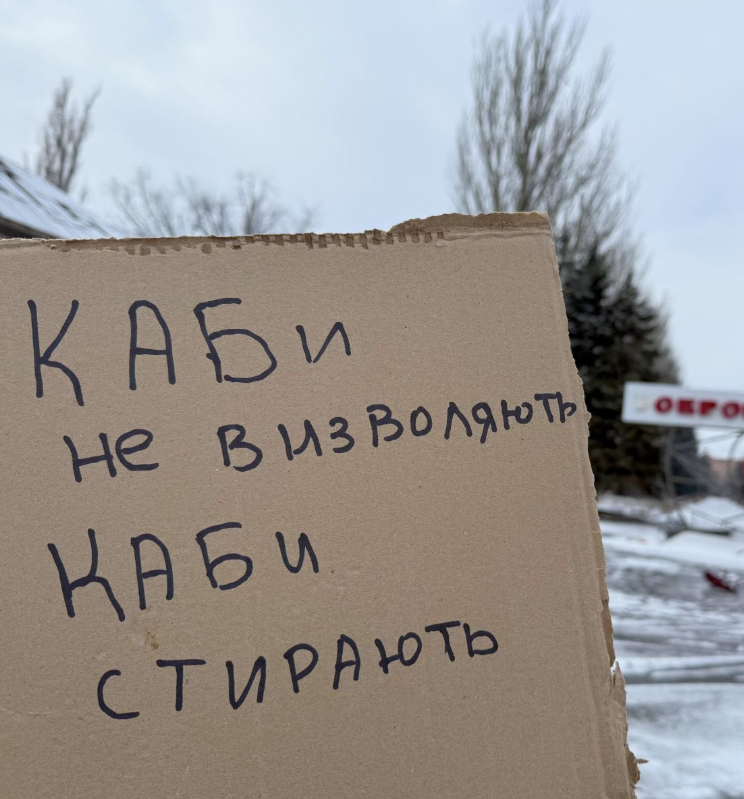 КАБи
не визволяють
КАБи
стирають